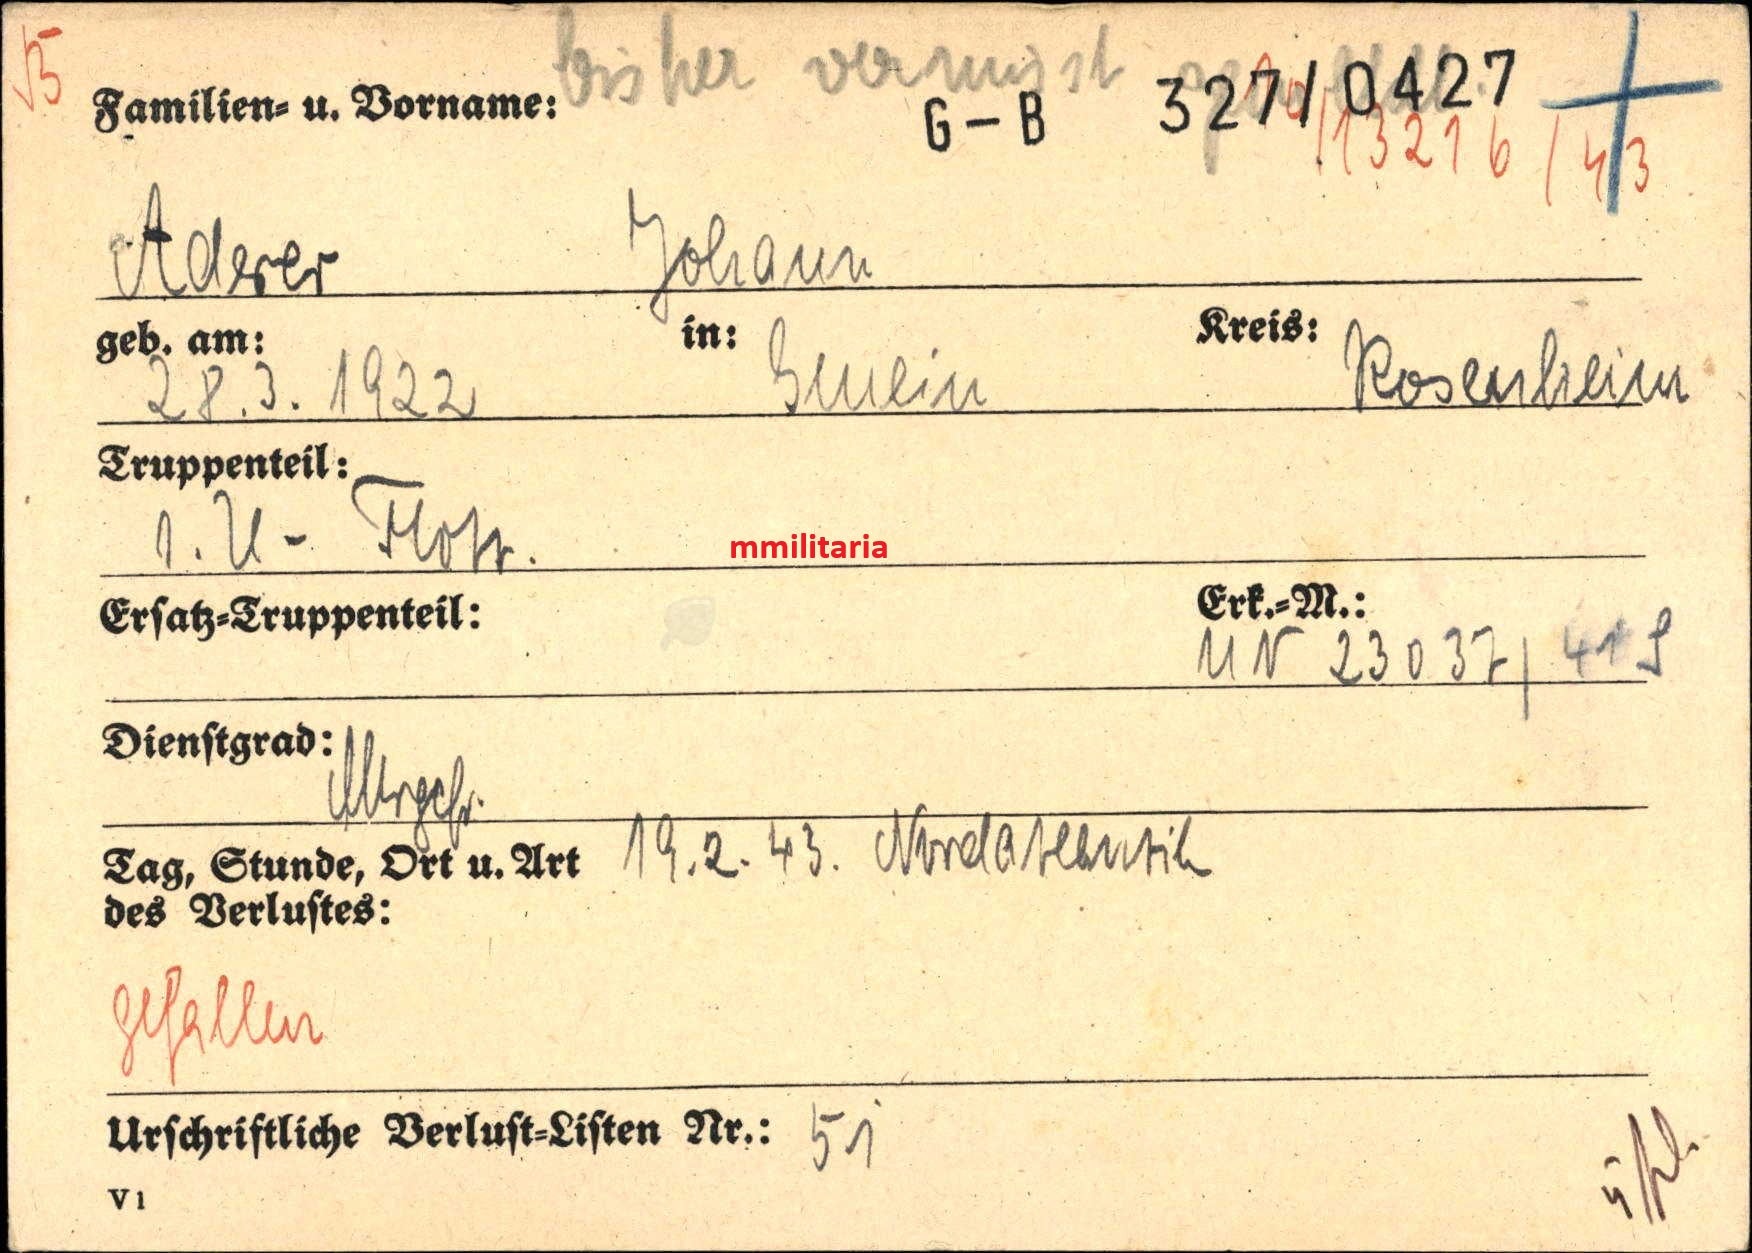 bisher vermisst
Familien- u. Vorname: G-B 327/0427
/13216/43
Aderer Johann
geb. am: in: Kreis:
28.3.1922 Rosenheim
Truppenteil:
1. U-Flott.
mmilitaria
Ersatz-Truppenteil: Erk.-M.:
UN 23037/41 S
Dienstgrad:
Mtrgefr.
Tag, Stunde, Ort u. Art 19.2.43. Nordatlantik
des Verlustes:
gefallen
Urschriftliche Verlust-Listen Nr.: 51
V 1